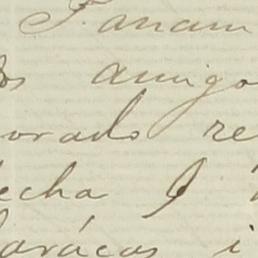 Panam
os amigo
orado re
echa 9
aracas i